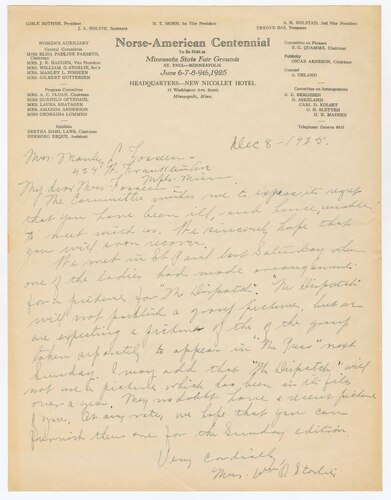 GISLE BOTHNE, President
J. A. HOLVIK, Secretary
N. T. MOEN, 1st Vice President
S. H. HOLSTAD, 2nd Vice President
TRYGVE OAS, Treasurer
Norse-American Centennial
To Be Held at
Minnesota State Fair Grounds
ST. PAUL—MINNEAPOLIS
June 6-7-8-9th, 1925
HEADQUARTERS—NEW NICOLLET HOTEL
Washington Ave. South
Minneapolis, Minn.
WOMEN'S AUXILIARY
Central Committee
MISS ELISA PAULINE FARSETH, Chairman
MRS. J. E. HAUGEN, Vice President
MRS. WILLIAM O. STORLIE, Sec'y
MRS. MANLEY L. FOSSEEN
MRS. GILBERT GUTTERSEN
Program Committee
MRS. A. C. FLOAN, Chairman
MISS GUNHILD OFTEDAHL
MRS. LAURA BRATAGER
MRS. AMANDA ANDERSON
MISS GEORGINA LOMMEN
Exhibits
HERBORG REQUE, Assistant
Committee on Finance
E. G. QUAMME, Chairman
Publicity
OSCAR ARNESON, Chairman
Counsel
A. UELAND
Committee on Arrangements
S. E. BERGESEN
H. ASKELAND
CARL D. KOLSET
O. H. SLETTEN
H. E. MADSEN
Telephone: Geneva
Dec 8 - 1925.
Mrs. Manley L. Fosseen
Mpls - Minn
My dear Mrs. Fosseen:
The Committee wishes me to express its regret
that you have been ill, and hence, unable
to meet with us. We sincerely hope that
you will soon recover.
We met in St Paul last Saturday when
one of the ladies had made arrangements
for a picture for "The Dispatch". "The Dispatch"
will not publish a group picture, but we
are expecting a picture of the of the group
taken separately to appear in "The Press" next
Sunday. I may add that "The Dispatch" will
not use a picture which has been in its files
over a year. They no doubt have a recent picture
of you. At any rate, we hope that you can
furnish them one for the Sunday edition
Very Cordially,
Mrs. Wm O. Storlie